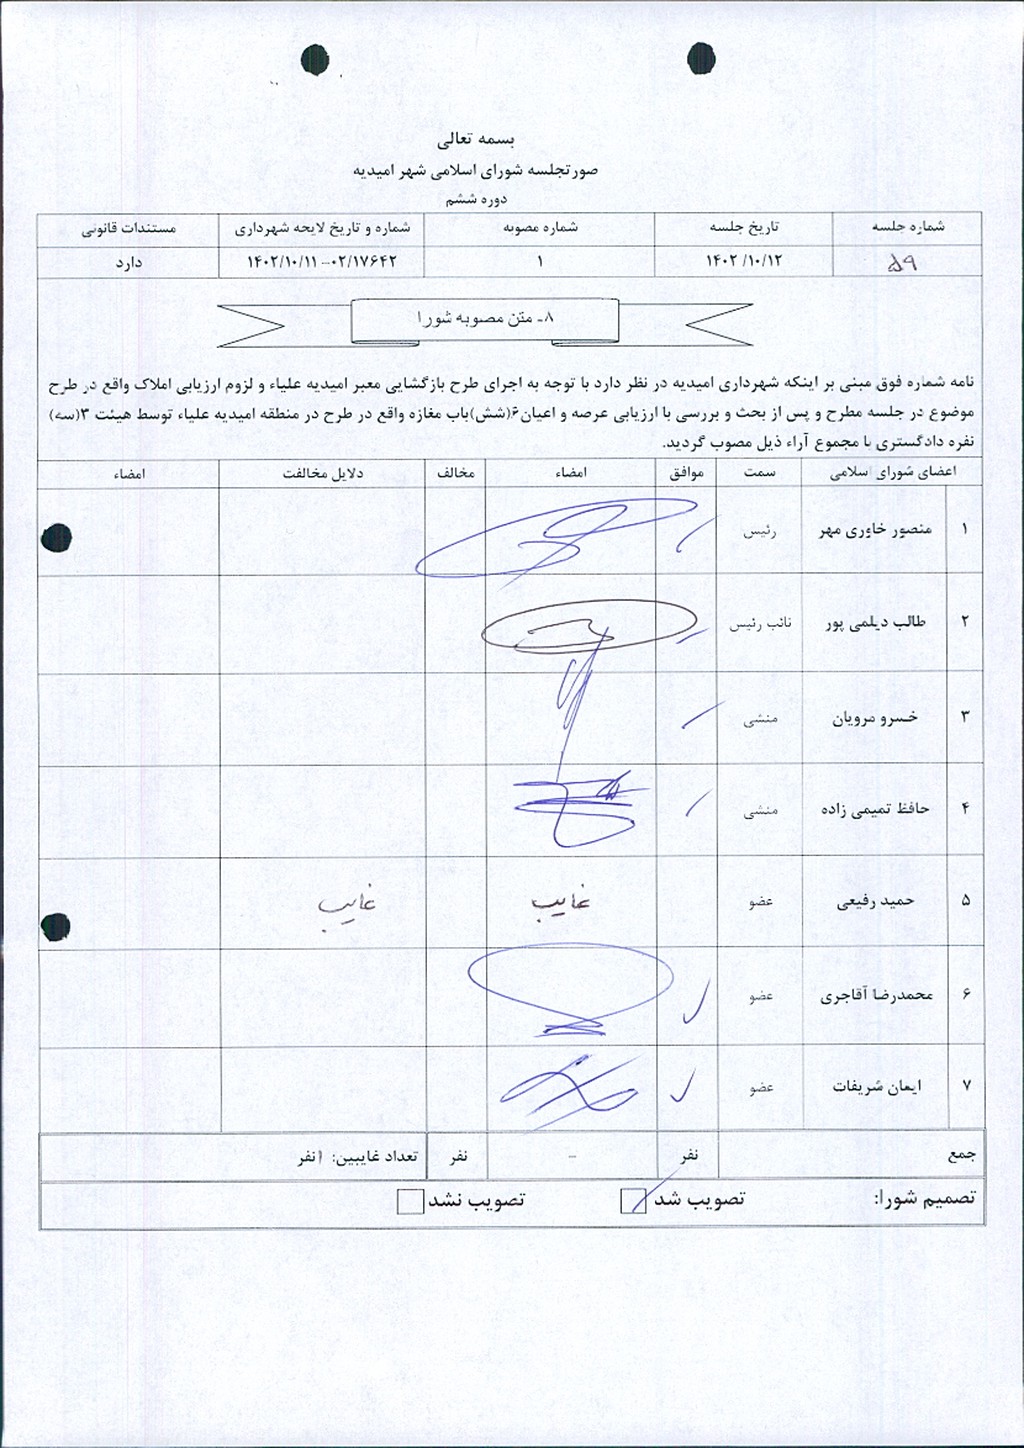 بسمه تعالی
صورتجلسه شورای اسلامی شهر امیدیه
دوره ششم
شماره جلسه	تاریخ جلسه	شماره مصوبه	شماره و تاریخ لایحه شهرداری	مستندات قانونی
۵۹	۱۴۰۲/۱۰/۱۲	۱	۰۲/۱۷۶۴۲-۱۴۰۲/۱۰/۱۱	دارد
۸- متن مصوبه شورا
نامه شماره فوق مبنی بر اینکه شهرداری امیدیه در نظر دارد با توجه به اجرای طرح بازگشایی معبر امیدیه علیاء و لزوم ارزیابی املاک واقع در طرح
موضوع در جلسه مطرح و پس از بحث و بررسی با ارزیابی عرصه و اعیان۶(شش)باب مغازه واقع در طرح در منطقه امیدیه علیاء توسط هیئت ۳(سه)
نفره دادگستری با مجموع آراء ذیل مصوب گردید.
اعضای شورای اسلامی	سمت	موافق	امضاء	مخالف	دلایل مخالفت	امضاء
۱	منصور خاوری مهر	رئیس
۲	طالب دیلمی پور	نائب رئیس
۳	خسرو مرویان	منشی
۴	حافظ تمیمی زاده	منشی
۵	حمید رفیعی	عضو	غایب	غایب
۶	محمدرضا آقاجری	عضو
۷	ایمان شریفات	عضو
جمع	نفر	-	نفر	تعداد غایبین: ۱نفر
تصمیم شورا:	تصویب شد	تصویب نشد